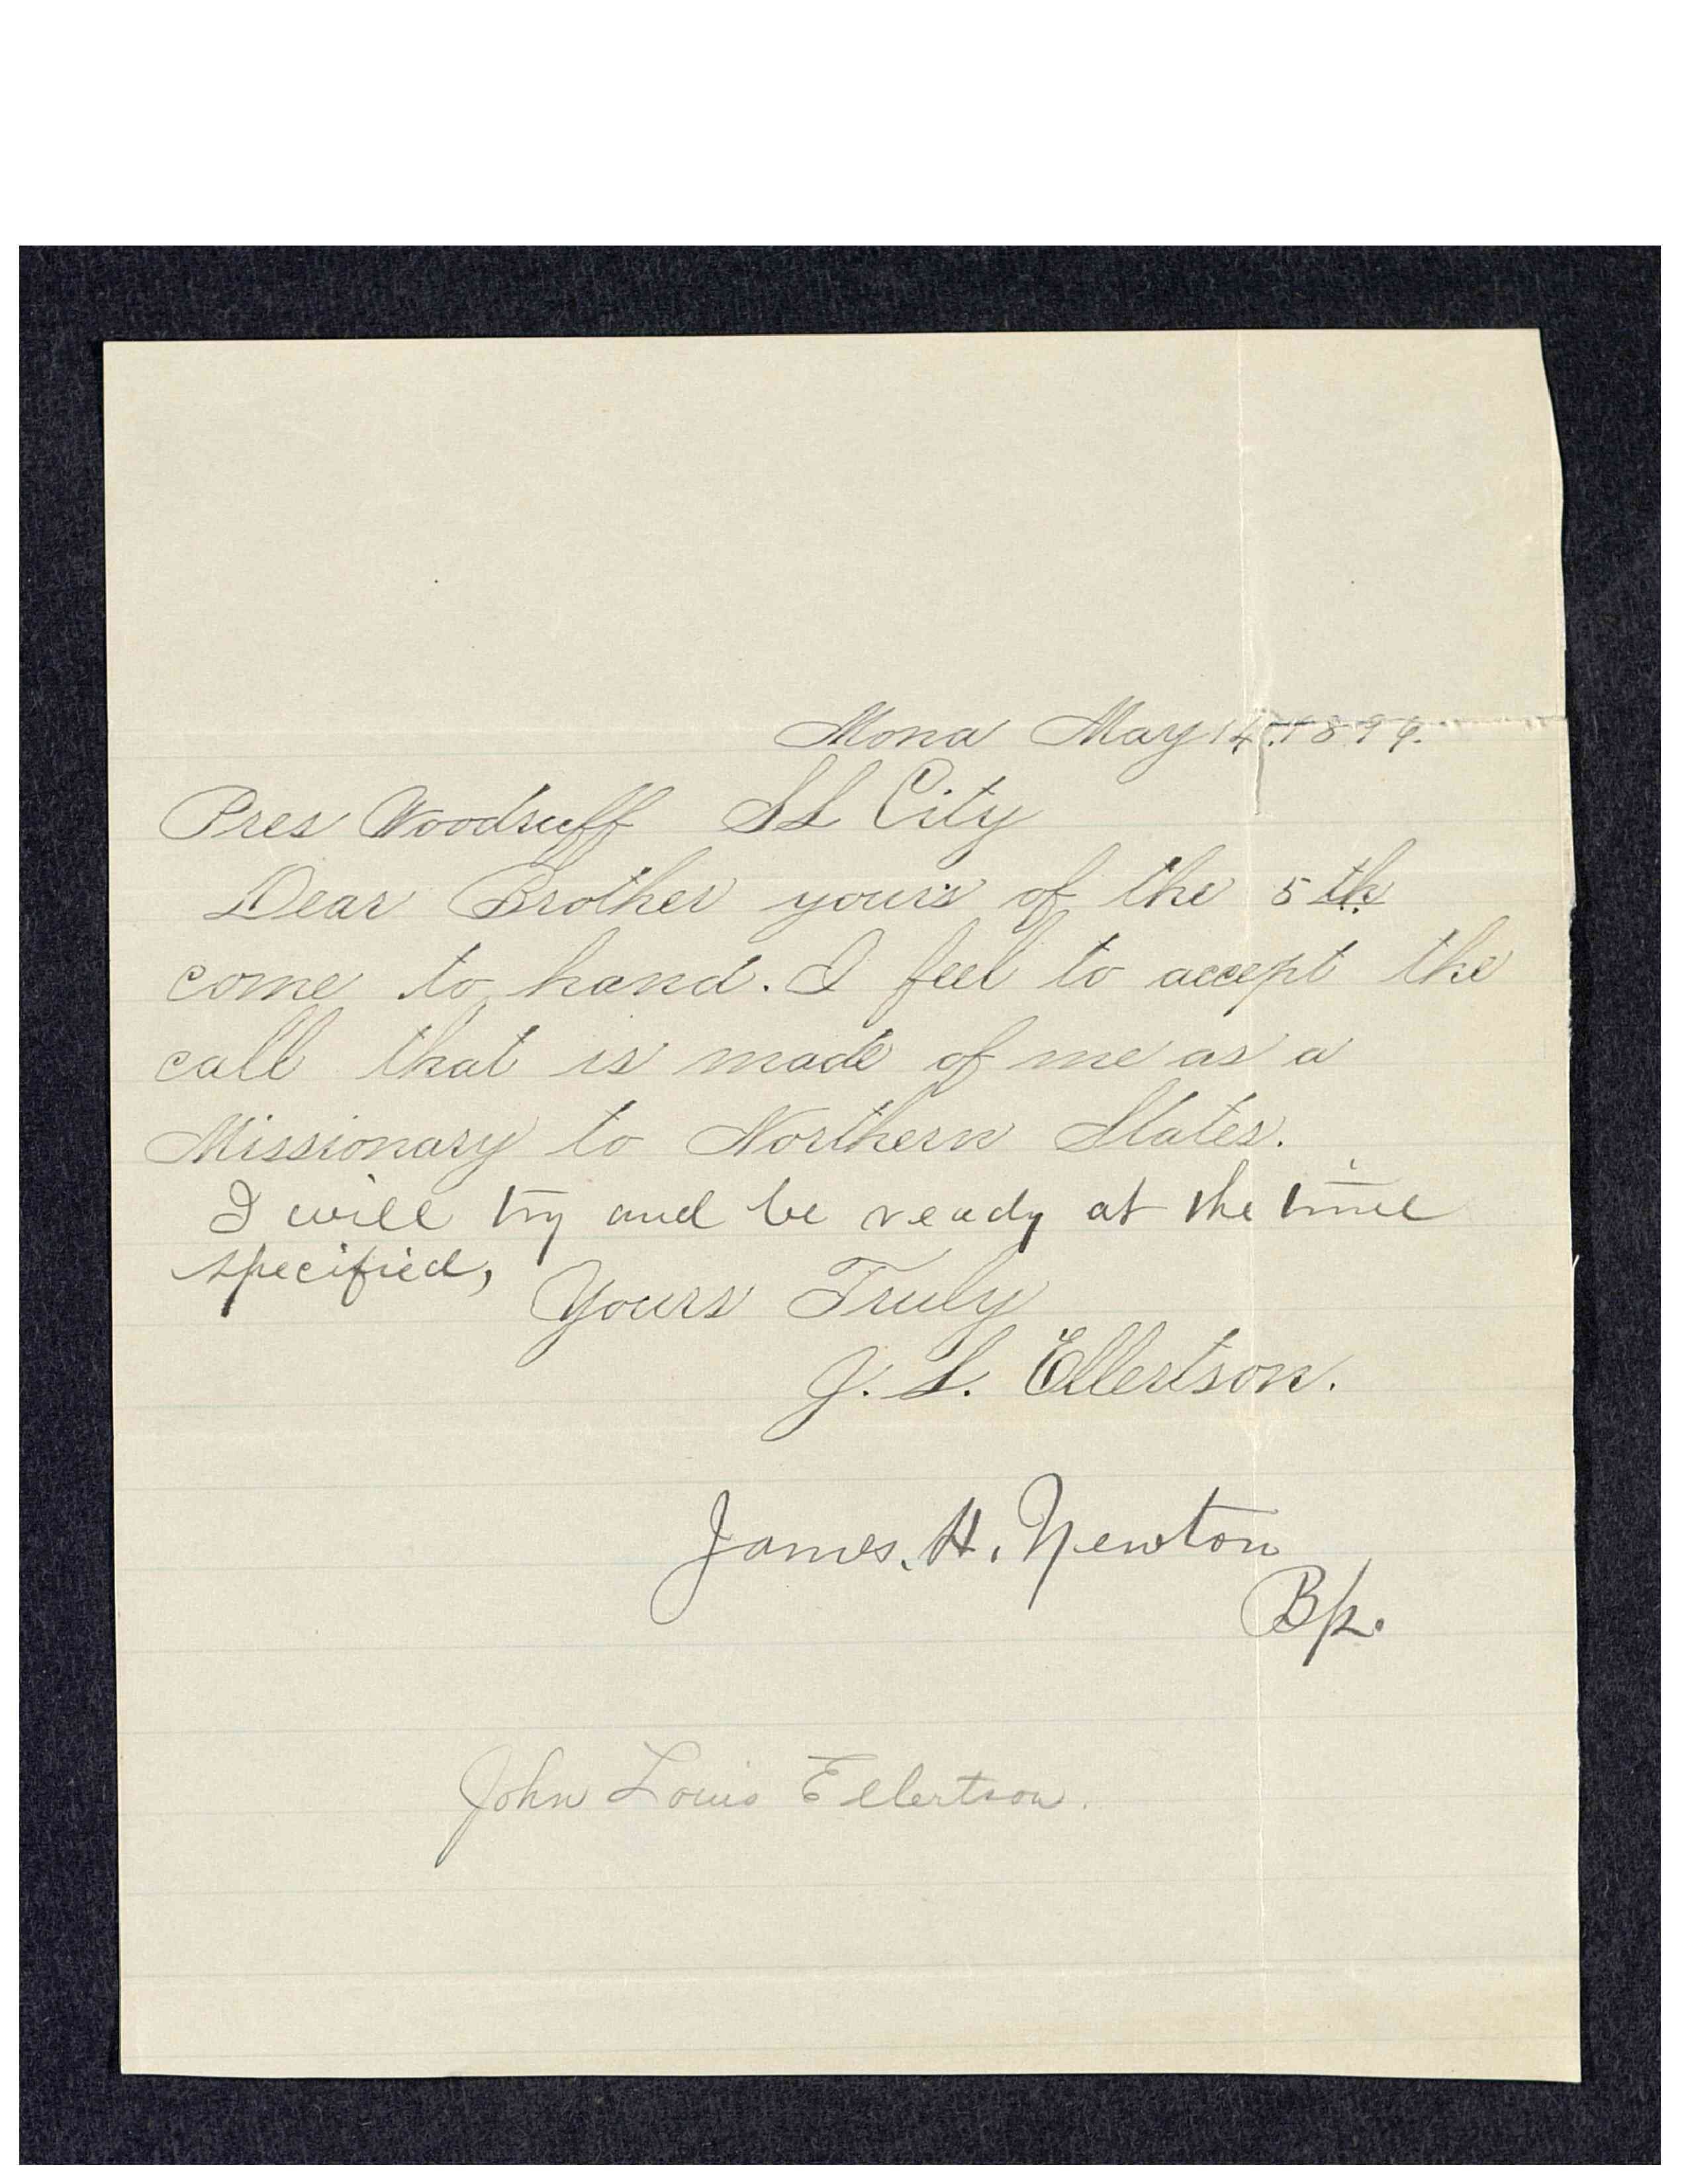 Mona May 14.
Pres Woodruff SL City
Dear Brother yours of the 5th
come to hand. I feel to accept the
call that is made of me as a
Missionary to Northern States.
I will try and be ready at the time
specified,
Yours Truly
J. L. Ellertson.
James. H. Newton
Bp.
John Louis Ellertson.